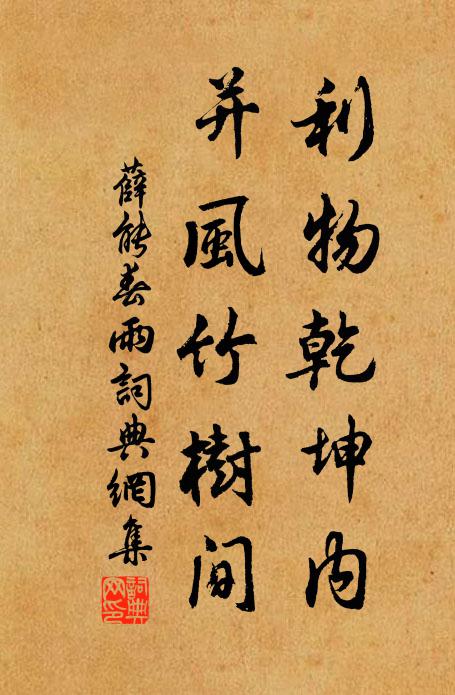 利物乾坤內
并風竹樹間
薛能春雨詞典網集
詞典網印